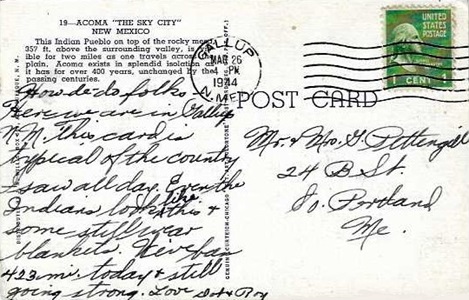 19—ACOMA "THE SKY CITY"
NEW MEXICO
This Indian Pueblo on top of the rocky mesa
357 ft. above the surrounding valley, is
ible for two miles as one travels across
plain. Acoma exists in splendid isolation as
it has for over 400 years, unchanged by the
passing centuries.
GALLUP
MAR 26
4 PM
1944
N.MEX.
UNITED
STATES
POSTAGE
1 CENT 1
POST CARD
How-de-do folks
Here we are in Gallup
N.M. This card is
typical of the country
I saw all day. Even the
Indians look like this &
some still wear
blankets. Give ban
423 mi. today & still
going strong. Love Dot & Roy
Mr. & Mrs. G. Pettengill
24 B St.
So. Portland
Me.